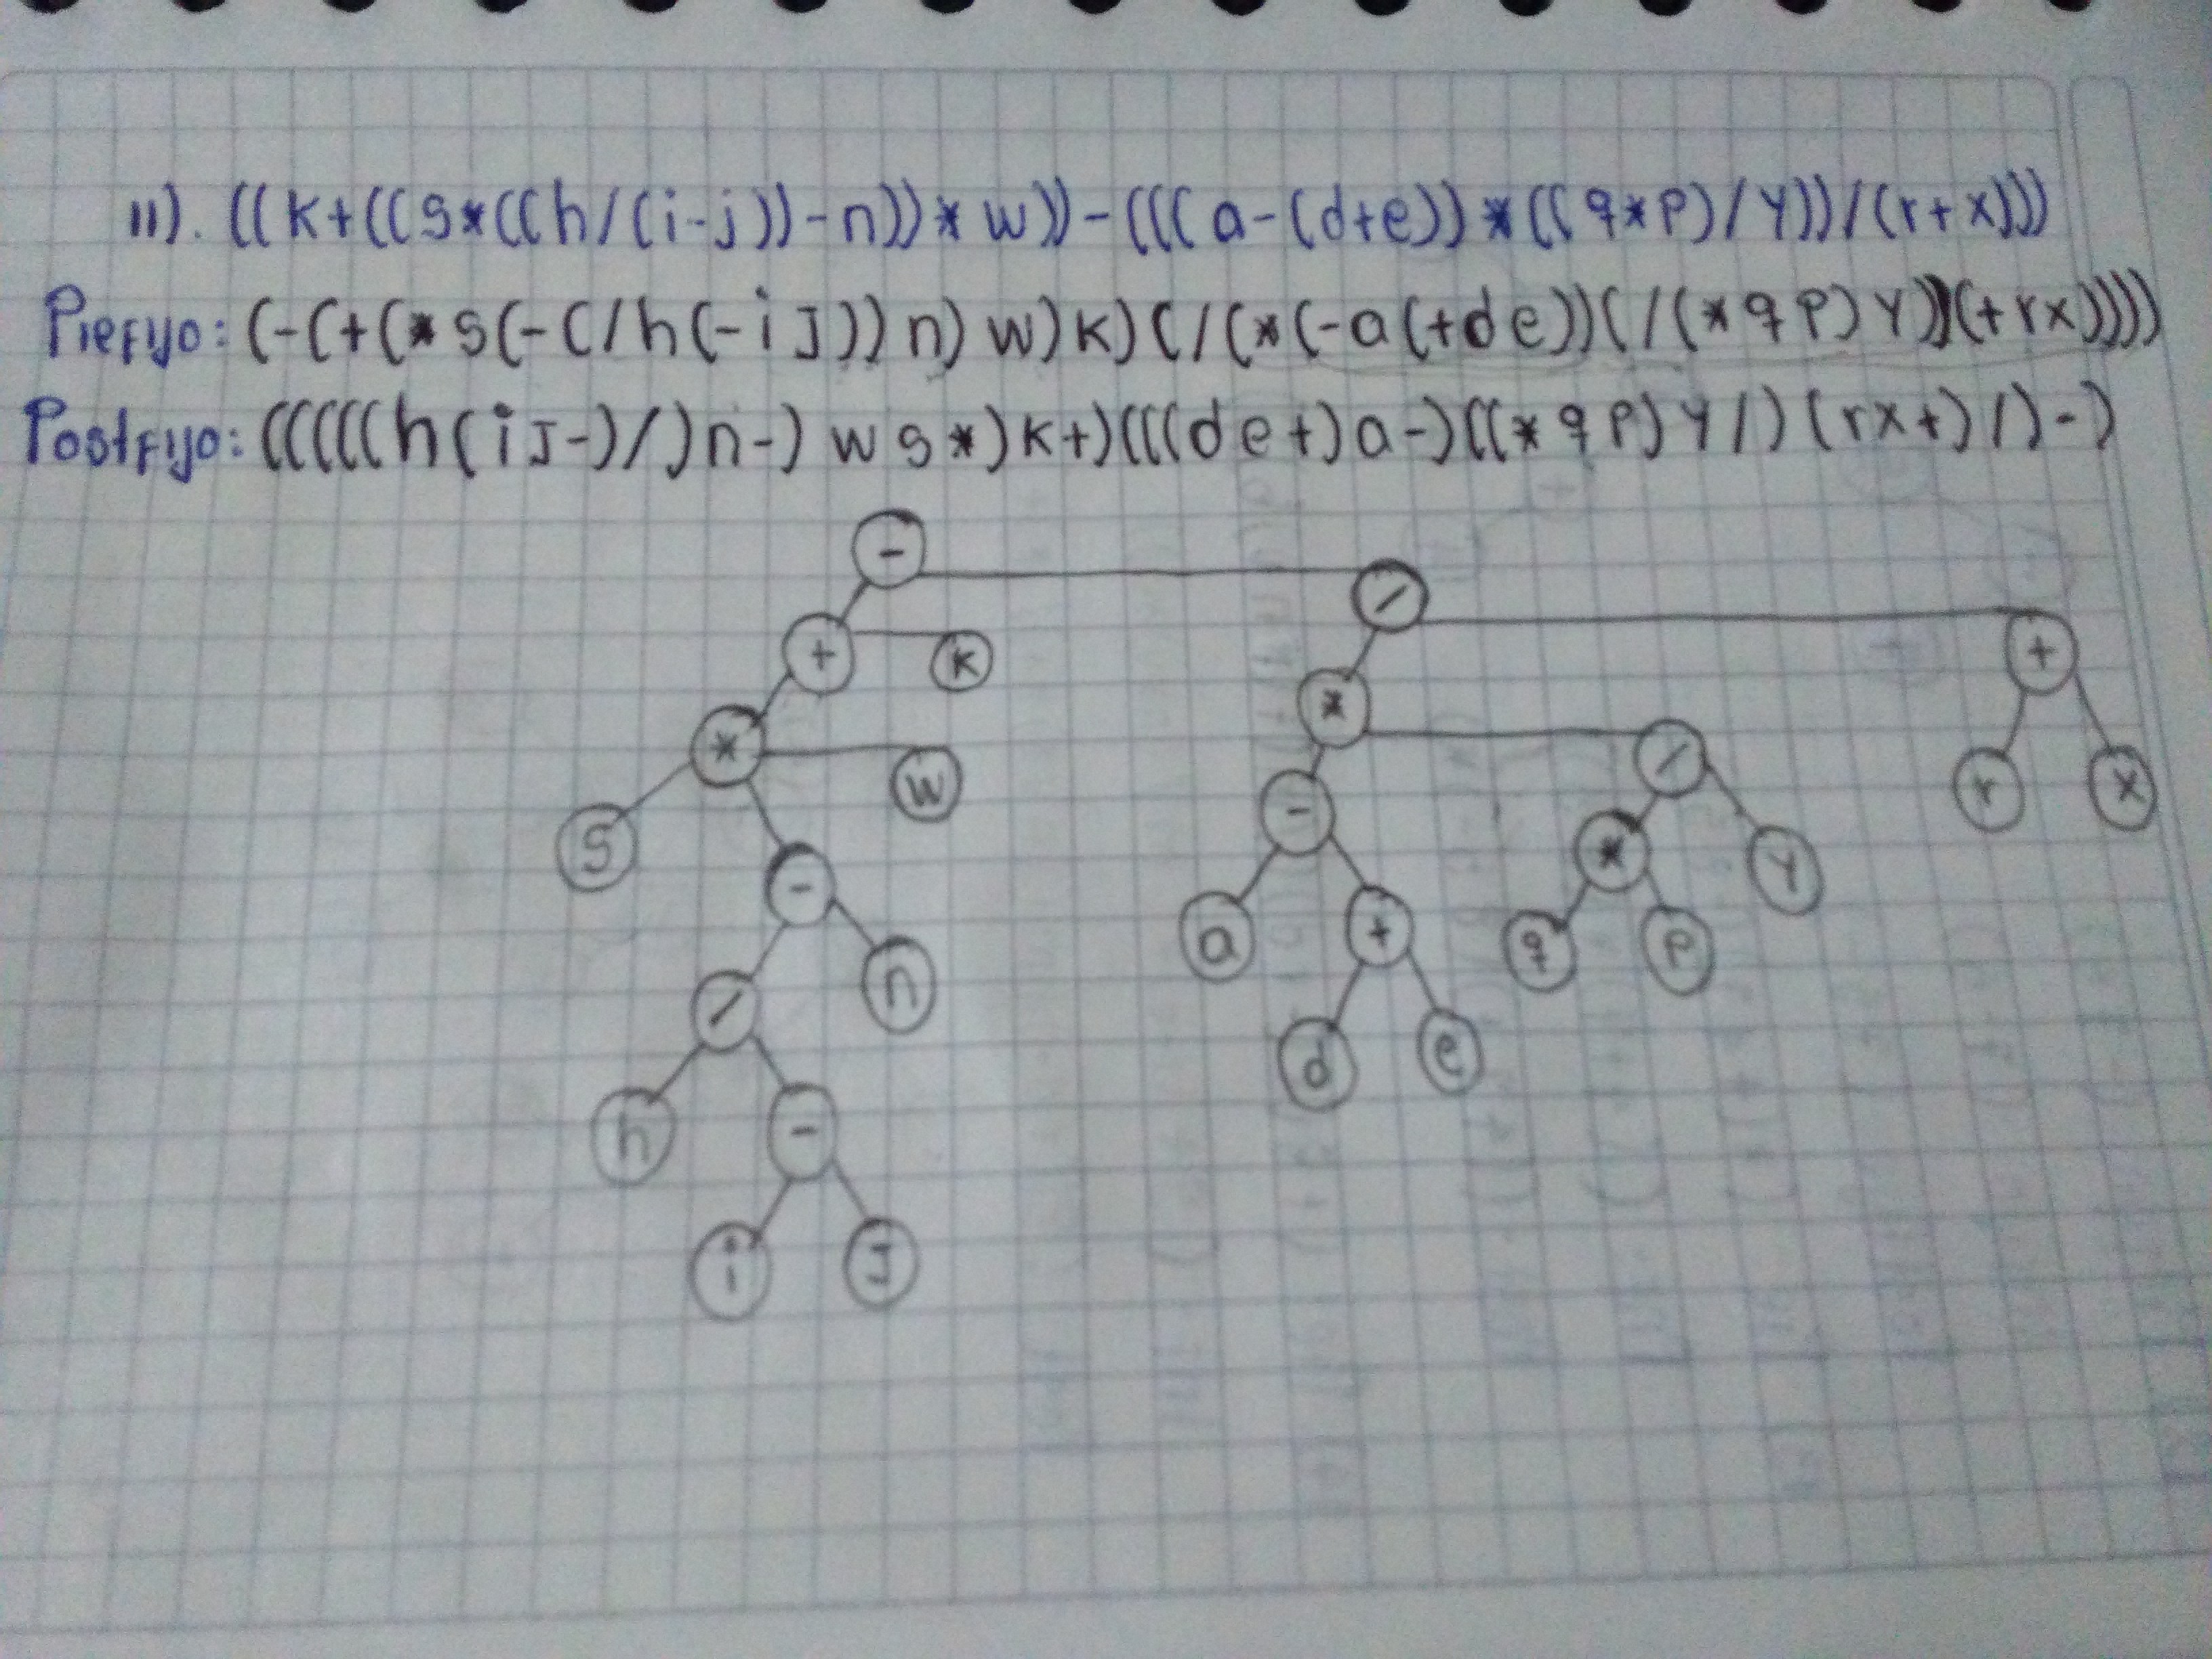 11). ((k+((s*((h/(i-j))-n))*w))-(((a-(d+e))*((q*p)/y))/(r+x)))
Prefijo: (-(+(*s(-(/h(-iJ))n)w)k)(/(*(-a(+de))(/(*qp)y))(+rx))))
Postfijo: (((((h(iJ-)/)n-)ws*)k+)(((de+)a-)((*qp)y/)(rx+)/)-)
-
/
+
k
+
*
*
w
-
/
r
x
s
-
*
y
a
+
q
p
/
n
d
e
h
-
i
J